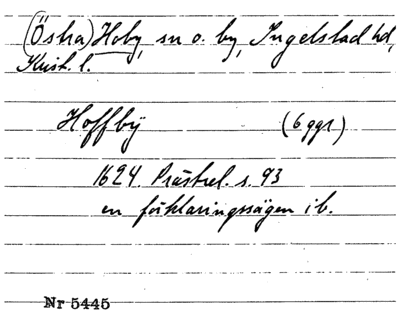 (Östra) Hoby, sn o. by, Ingelstad hd,
Krist. l.
Hoffbÿ (6 ggr)
1624. Prästrel. s. 93
en förklaringssägen i b.
Nr 5445